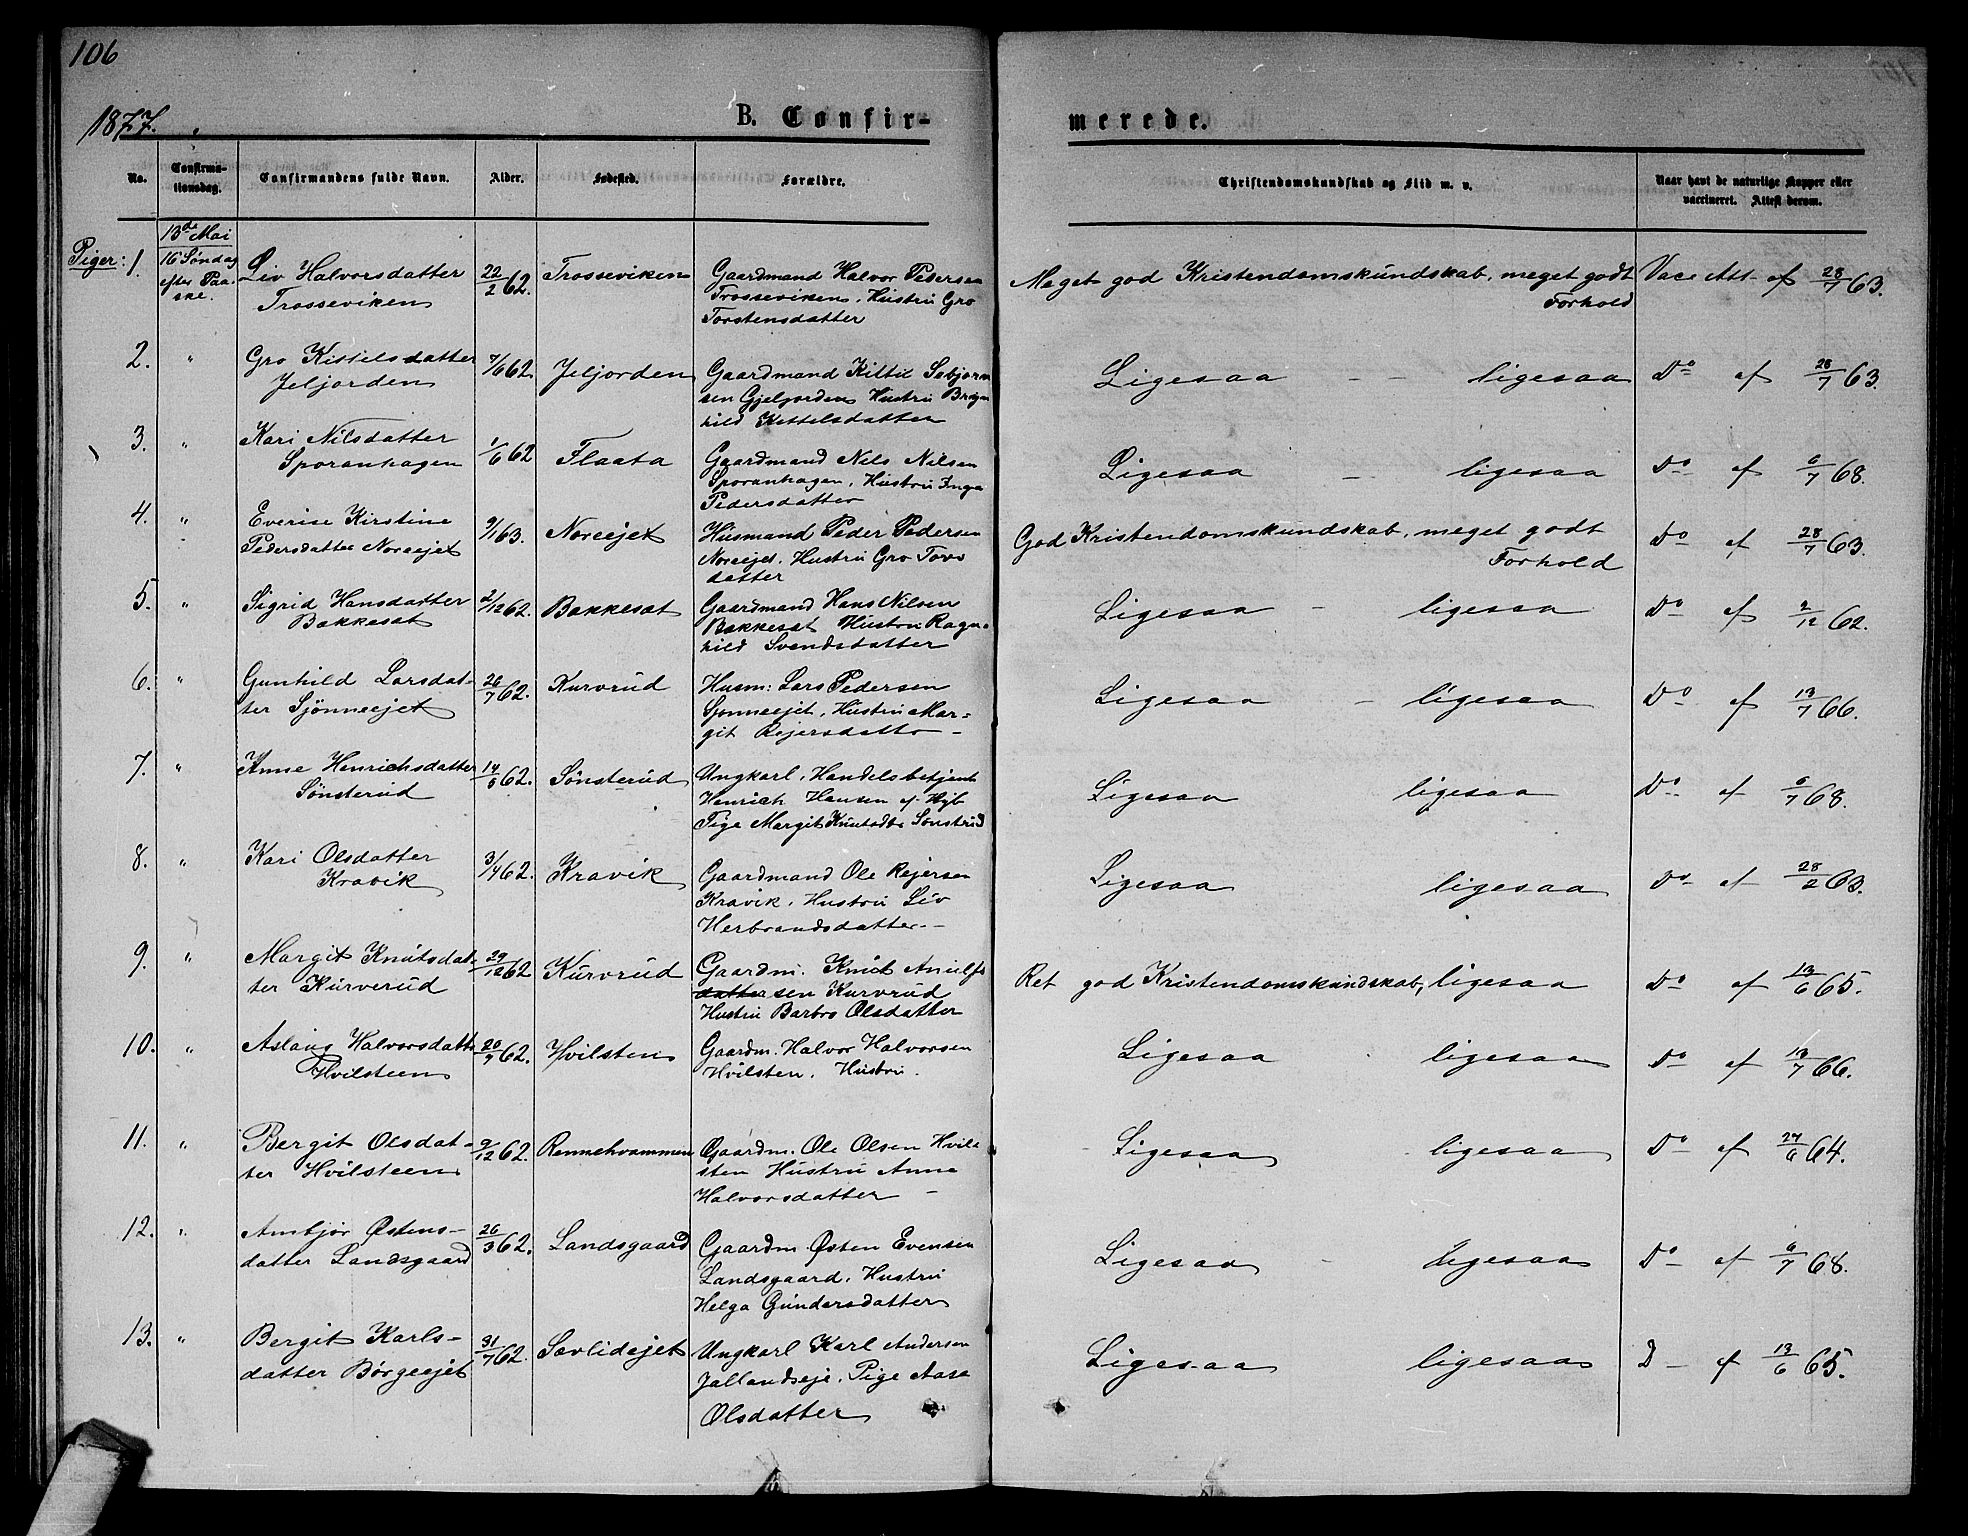 106
1877.
B. Confir-
merede.
No.
Confirma-
tionsdag.
Confirmandens fulde Navn.
Alder.
Fødested.
Forældre.
Christendomskundskab og Flid m. v.
Naar havt de naturlige Kopper eller
vaccineret. Attest derom.
Piger: 1.
13de Mai
Søndag
efter Paa-
ske.
Liv Halvorsdatter
Trosseviken
22/2 62.
Trosseviken
Gaardmand Halvor Pedersen
Trosseviken, Hustru Gro
Torstensdatter
Meget god Kristendomskundskab, meget godt
Forhold
Vacc Att. af 28/7 63.
2. "
Gro Kittelsdatter
Jeljorden
7/6 62.
Jeljorden
Gaardmand Kittil Sebjørn
sen Gjeljorden Hustru Bragn
hild Kettelsdatter
Ligesaa — — ligesaa
Do af 28/7 63.
3. "
Kari Nilsdatter
Sporanhagen
1/6 62
Flaata
Gaardmand Nils Nilsen
Sporanhagen, Hustru Inga
Pedersdatter
Ligesaa — ligesaa
Do af 6/7 68.
4. "
Everise Kirstine
Pedersdatter Noreejet
9/1 63.
Noreejet
Husmand Peder Pedersen
Noreejet. Hustru Gro Tovs
datter
God Kristendomskundskab, meget godt
Forhold
Do af 28/7 63.
5. "
Sigrid Hansdatter
Bakkesat
2/12 62.
Bakkesat
Gaardmand Hans Nilsen
Bakkesat Hustru Ragn-
hild Svendsdatter
Ligesaa - ligesaa
Do af 2/12 62.
6. "
Gunhild Larsdat-
ter Sjønneejet
26/7 62.
Kurvrud
Husm: Lars Pedersen
Sjonneejet, Hustru Mar-
git Rejersdatter -
Ligesaa - ligesaa
Do af 13/7 66.
7. "
Anne Henrichsdatter
Sønsterud
14/6 62.
Sønsterud
Ungkarl, Handelsbetjent
Henrich Hansen af Hjb
Pige Margit Knutsdtr Sønstrud
Ligesaa ligesaa
Do af 6/7 68.
8. "
Kari Olsdatter
Kravik
3/4 62.
Kravik
Gaardmand Ole Rejersen
Kravik, Hustru Liv
Herbrandsdatter -
Ligesaa ligesaa
Do af 28/2 63.
9. "
Margit Knutsdat
ter Kurverud
29/12 62
Kurvrud
Gaardm. Knut Arnulfs
datter sen Kurvrud
Hustru Barbro Olsdatter
Ret god Kristendomskundskab, ligesaa
Do af 13/6 65.
10. "
Aslaug Halvorsdatt
Hvilsteen
20/9 62.
Hvilsten
Gaardm. Halvor Halvorsen
Hvilsten. Hustru.
Ligesaa ligesaa
Do af 13/7 66.
11. "
Bergit Olsdat-
ter Hvilsteen
9/12 62.
Rennehvammen
Gaardm. Ole Olsen Hvile
sten Hustru Anne
Halvorsdatter -
Ligesaa ligesaa
Do af 24/6 64.
12. "
Ambjør Østens-
datter Landsgaard
26/3 62.
Landsgaard
Gaardm Østen Evensen
Landsgaard, Hustru
Helga Gundersdatter
Ligesaa - ligesaa
Do af 6/7 68.
13. "
Bergit Karls-
datter Børgeejet
31/7 62.
Sævlidejet
Ungkarl Karl Andersen
Jallandseje, Pige Aase
Olsdatter
Ligesaa ligesaa
D — af 13/6 65.